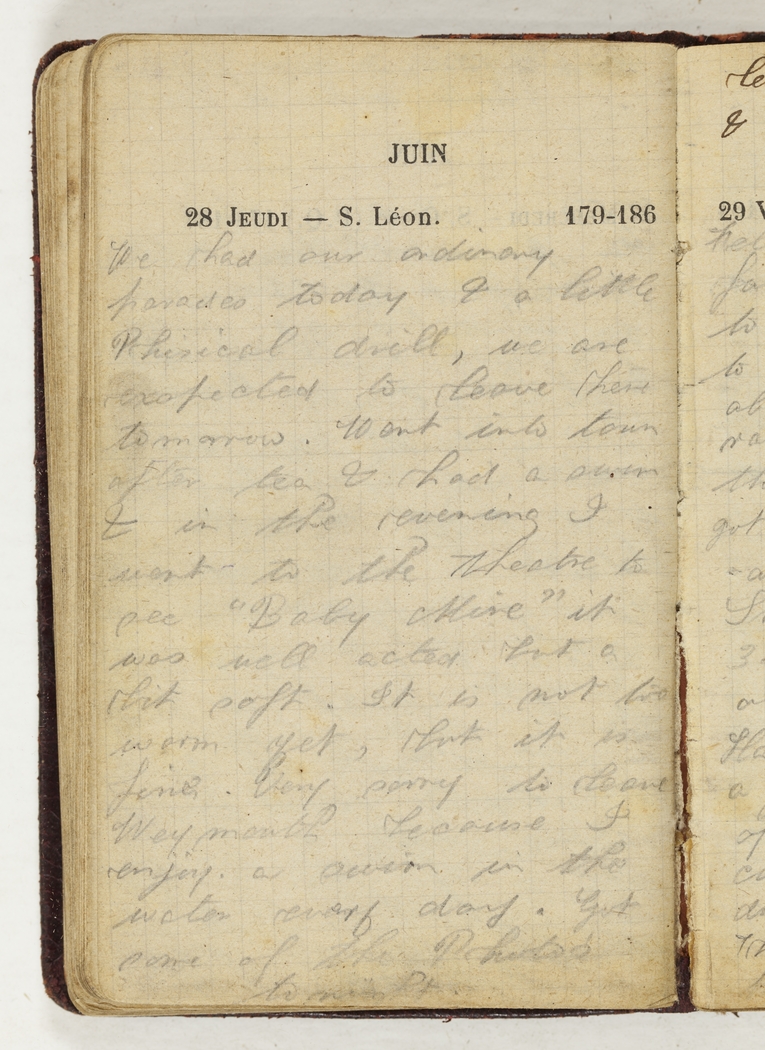 JUIN
28 JEUDI — S. Léon. 179-186
We had our ordinary
parades today & a little
Phisical drill, we are
expected to leave here
tomorrow. Went into town
after tea & had a swim
& in the evening I
went to the Theatre to
see "Baby Mine" it
was well acted but a
bit soft. It is not too
warm yet, but it is
fine. Very sorry to leave
Weymouth because I
enjoy a swim in the
water every day. Got
some of the Photos
tonight.
le
&
29 V
to
to
ab
got
3
a
a
of